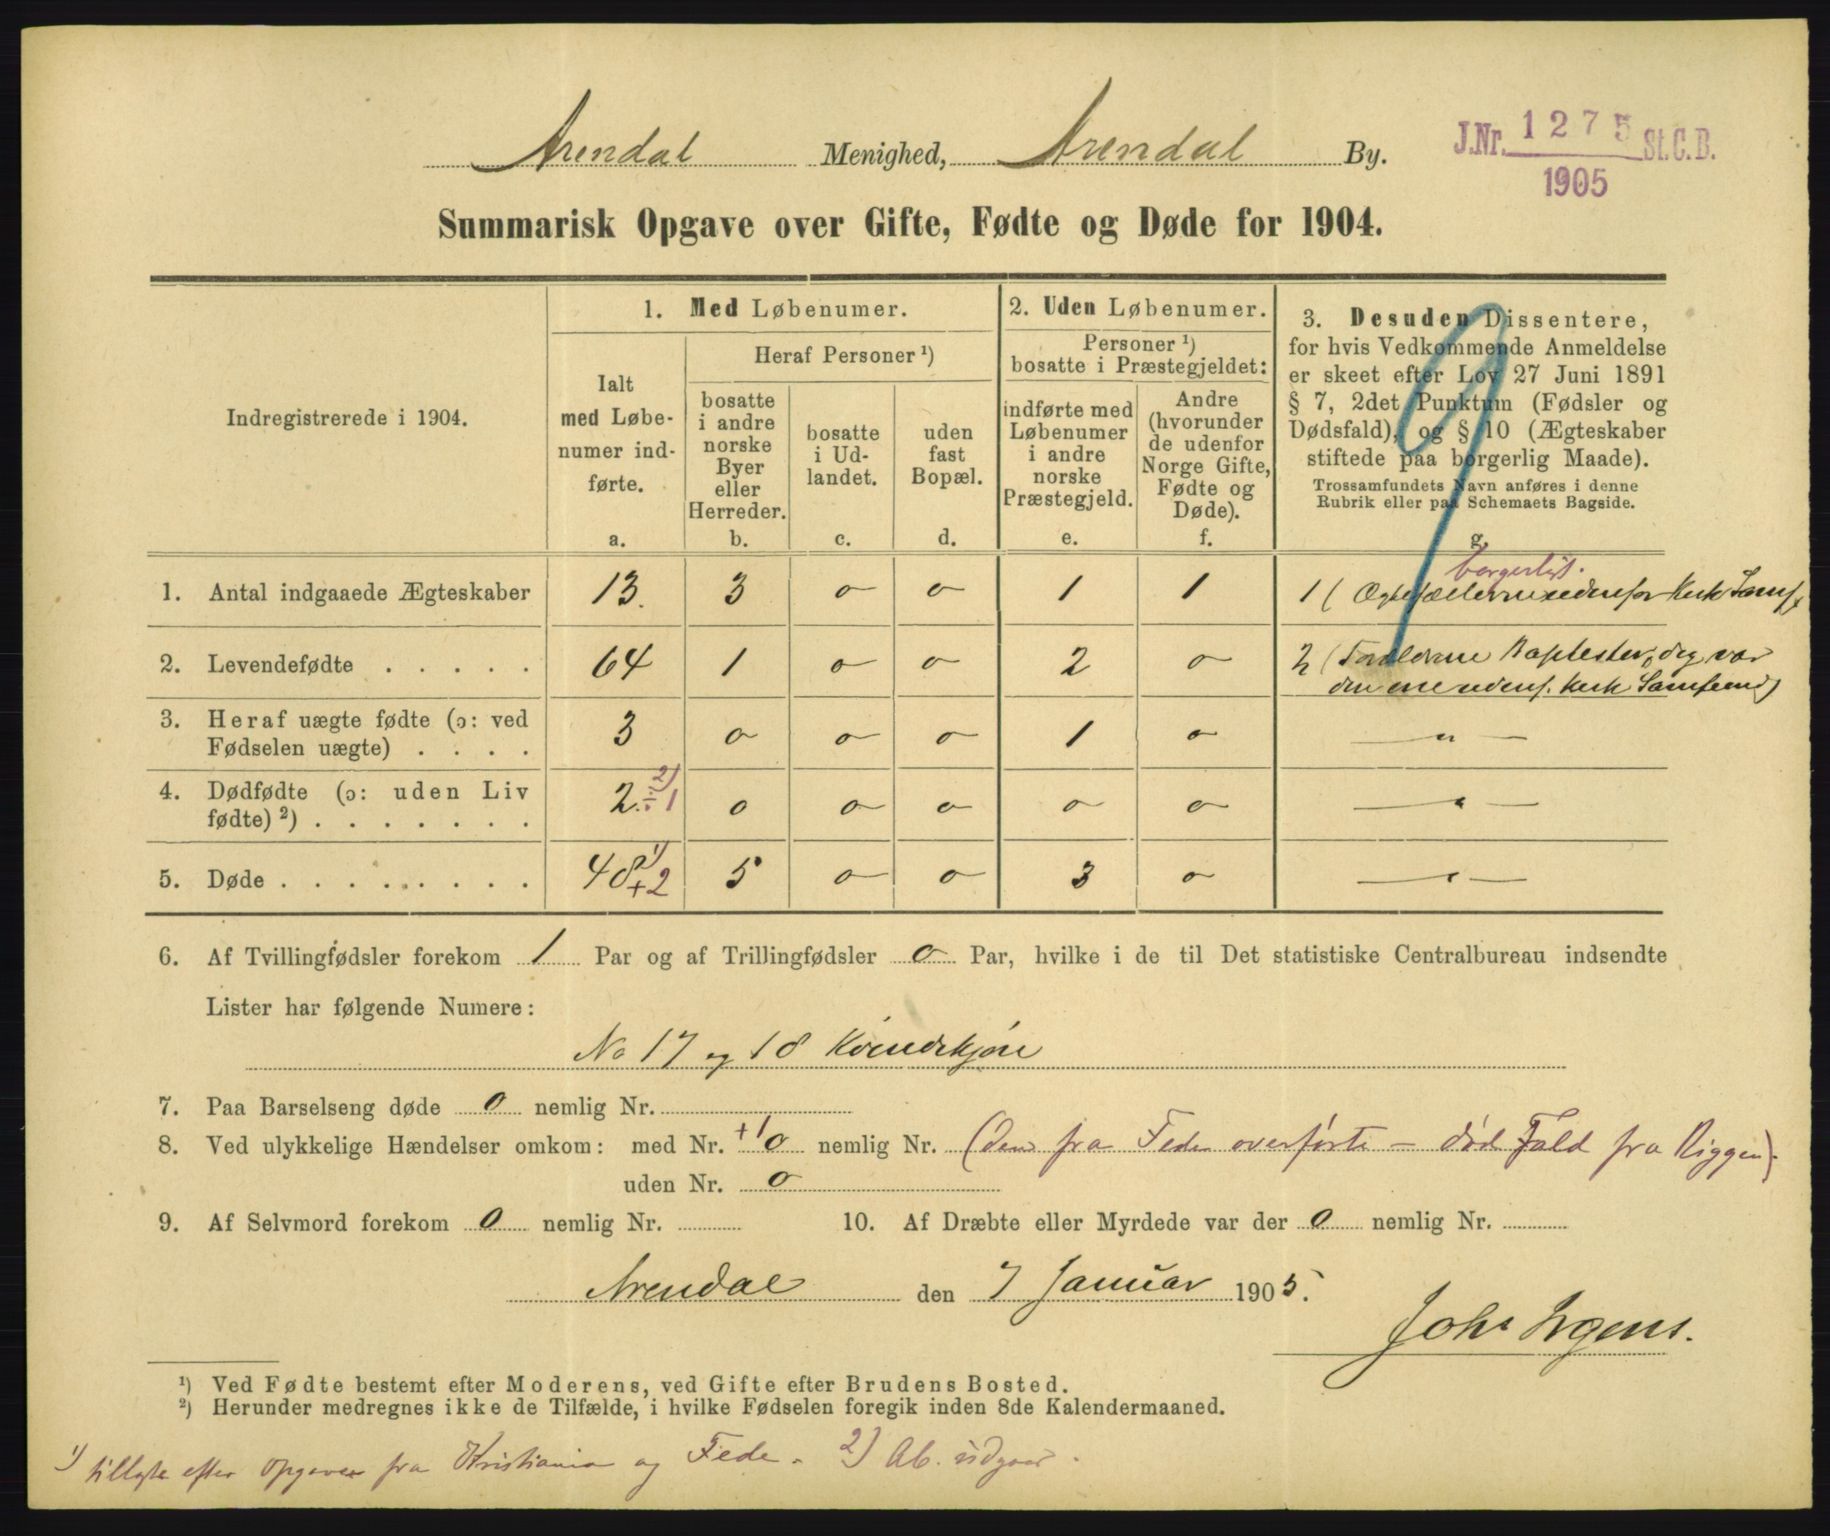 Arendal Menighed, Arendal By.
J.Nr. 1275 St.C.B.
1905
Summarisk Opgave over Gifte, Fødte og Døde for 1904.
Indregistrerede i 1904.
1. Med Løbenumer.
Ialt
med Løbe-
numer ind-
førte.
a.
Heraf Personer ¹)
bosatte
i andre
norske
Byer
eller
Herreder.
b.
bosatte
i Ud-
landet.
c.
uden
fast
Bopæl.
d.
2. Uden Løbenumer.
Personer ¹)
bosatte i Præstegjeldet:
indførte med
Løbenumer
i andre
norske
Præstegjeld.
e.
Andre
(hvorunder
de udenfor
Norge Gifte,
Fødte og
Døde).
f.
3. Desuden Dissentere,
for hvis Vedkommende Anmeldelse
er skeet efter Lov 27 Juni 1891
§ 7, 2det Punktum (Fødsler og
Dødsfald), og § 10 (Ægteskaber
stiftede paa borgerlig Maade).
Trossamfundets Navn anføres i denne
Rubrik eller paa Schemaets Bagside.
g.
borgerligt.
1. Antal indgaaede Ægteskaber 13. 3 0 0 1 1 1 ( udenfor Kirk Samf)
2. Levendefødte . . . . . 64 1 0 0 2 0 2 (Forældrene Baptister, dog var
den ene udenf. Kirk Samfund)
3. Heraf uægte fødte (ɔ: ved
Fødselen uægte) . . . . 3 0 0 0 1 0 — " —
4. Dødfødte (ɔ: uden Liv
fødte) ²) . . . . . . . 2. ÷ 1 2) 0 0 0 0 0 — " —
5. Døde . . . . . . . . . 48 1) +2 5 0 0 3 0 — " —
6. Af Tvillingfødsler forekom 1 Par og af Trillingfødsler 0 Par, hvilke i de til Det statistiske Centralbureau indsendte
Lister har følgende Numere:
No 17 og 18 Kvindekjøn
7. Paa Barselseng døde 0 nemlig Nr.
8. Ved ulykkelige Hændelser omkom: med Nr. +1 0 nemlig Nr. (den fra Fede overførte — død Fald fra Riggen).
uden Nr. 0
9. Af Selvmord forekom 0 nemlig Nr. 10. Af Dræbte eller Myrdede var der 0 nemlig Nr.
Arendal den 7 Januar 1905.
Joh. Irgens.
¹) Ved Fødte bestemt efter Moderens, ved Gifte efter Brudens Bosted.
²) Herunder medregnes ikke de Tilfælde, i hvilke Fødselen foregik inden 8de Kalendermaaned.
1) tillagte efter Opgaver fra Kristiania og Fede. 2) Ab. udgaar.